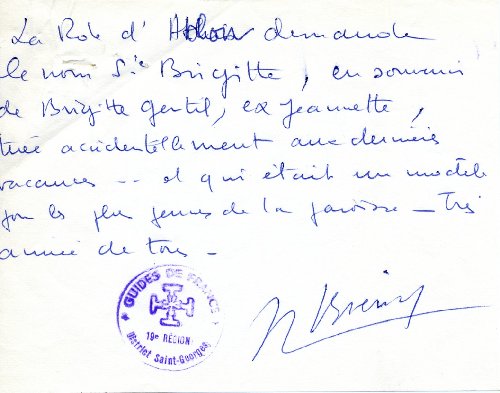 La Rde d' demande
le nom Ste Brigitte, en souvenir
de Brigitte Gentil, ex Jeannette,
tuée accidentellement aux dernières
vacances -- et qui était un modèle
pour les plus jeunes de la paroisse - Très
aimée de tous -
GUIDES DE FRANCE
19e RÉGION
District Saint-Georges